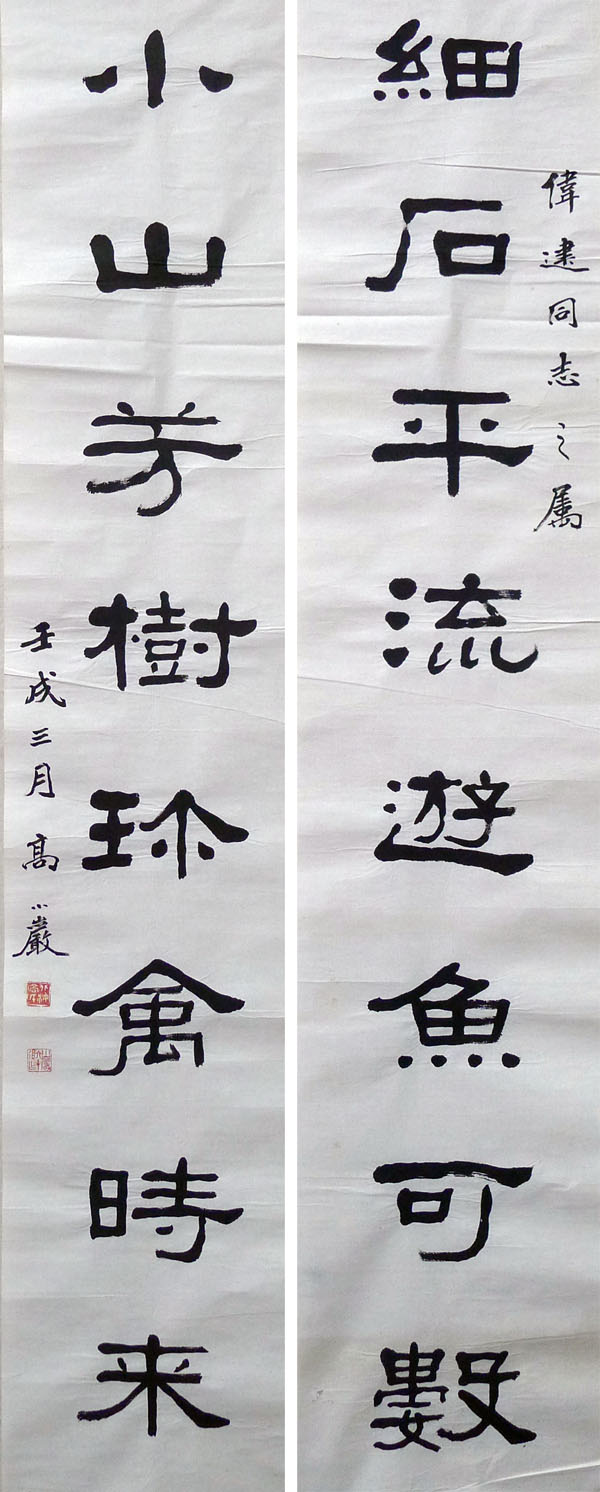 偉建同志之属
細石平流遊魚可數
小山芳樹珎禽時来
壬戌三月高小巖